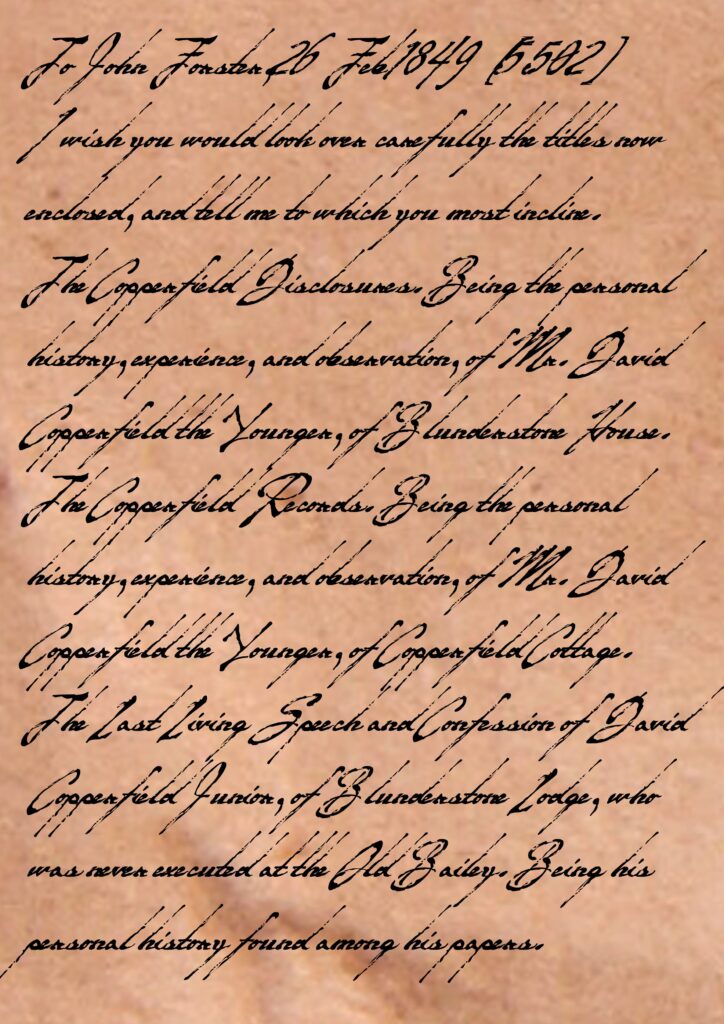 To John Forster, 26 Feb, 1849 [5,502]
I wish you would look over carefully the titles now
enclosed, and tell me to which you most incline.
The Copperfield Disclosures. Being the personal
history, experience, and observation, of Mr. David
Copperfield the Younger, of Blunderstone House.
The Copperfield Records. Being the personal
history, experience, and observation, of Mr. David
Copperfield the Younger, of Copperfield Cottage.
The Last Living Speech and Confession of David
Copperfield Junior, of Blunderstone Lodge, who
was never executed at the Old Bailey. Being his
personal history found among his papers.